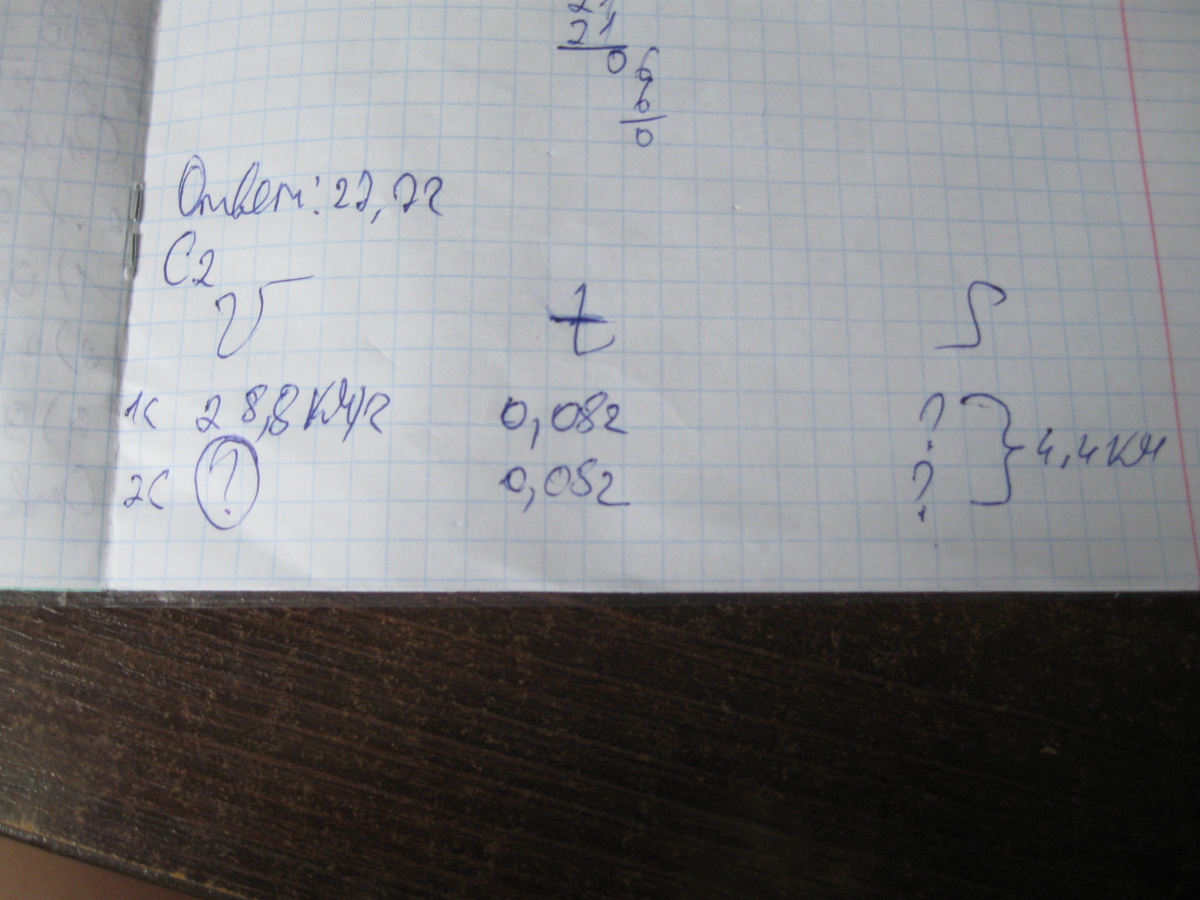 21
21
0 6
6
0
Ответ: 27,7г
С2
V t S
1с 28,8 км/г 0,08г ? } 4,4 км
2с ? 0,08г ?